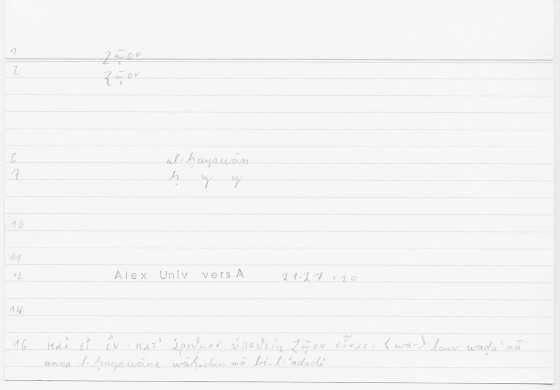 1 ζῷον
2 ζῷον
6 al-ḥayawān
7 ḥ y y
10
11
12 Alex Univ vers A 21.27 = 20
14
16 καὶ εἰ ἓν κατ' ἀριθμὸν ὑποθείη ζῷον εἶναι (wa-) law waḍaʿnā
anna l-ḥayawāna wāḥidun mā bi-l-ʿadadi